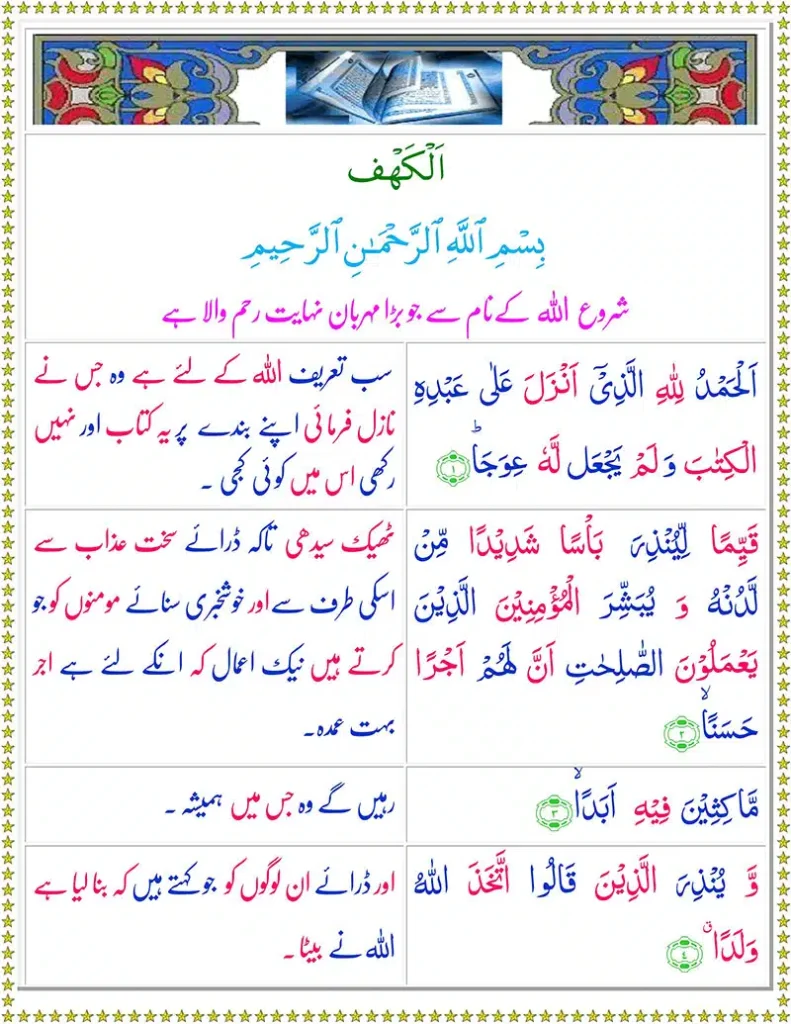 اَلْكَهْف
بِسْمِ ٱللَّهِ ٱلرَّحْمَـٰنِ ٱلرَّحِيمِ
شروع اللہ کے نام سے جو بڑا مہربان نہایت رحم والا ہے
اَلْحَمْدُ لِلّٰهِ الَّذِیْۤ اَنْزَلَ عَلٰی عَبْدِهِ
الْكِتٰبَ وَ لَمْ یَجْعَل لَّهٗ عِوَجًاؕ ١
سب تعریف اللہ کے لئے ہے وہ جس نے
نازل فرمائی اپنے بندے پر یہ کتاب اور نہیں
رکھی اس میں کوئی کجی ۔
قَیِّمًا لِّیُنْذِرَ بَاْسًا شَدِیْدًا مِّنْ
لَّدُنْهُ وَ یُبَشِّرَ الْمُؤْمِنِیْنَ الَّذِیْنَ
یَعْمَلُوْنَ الصّٰلِحٰتِ اَنَّ لَهُمْ اَجْرًا
حَسَنًاۙ ٢
ٹھیک سیدھی تاکہ ڈرائے سخت عذاب سے
اسکی طرف سے اور خوشخبری سنائے مومنوں کو جو
کرتے ہیں نیک اعمال کہ انکے لئے ہے اجر
بہت عمدہ۔
مَّاكِثِیْنَ فِیْهِ اَبَدًاۙ ٣
رہیں گے وہ جس میں ہمیشہ ۔
وَّ یُنْذِرَ الَّذِیْنَ قَالُوا اتَّخَذَ اللّٰهُ
وَلَدًاۗ ٤
اور ڈرائے ان لوگوں کو جو کہتے ہیں کہ بنا لیا ہے
اللہ نے بیٹا ۔